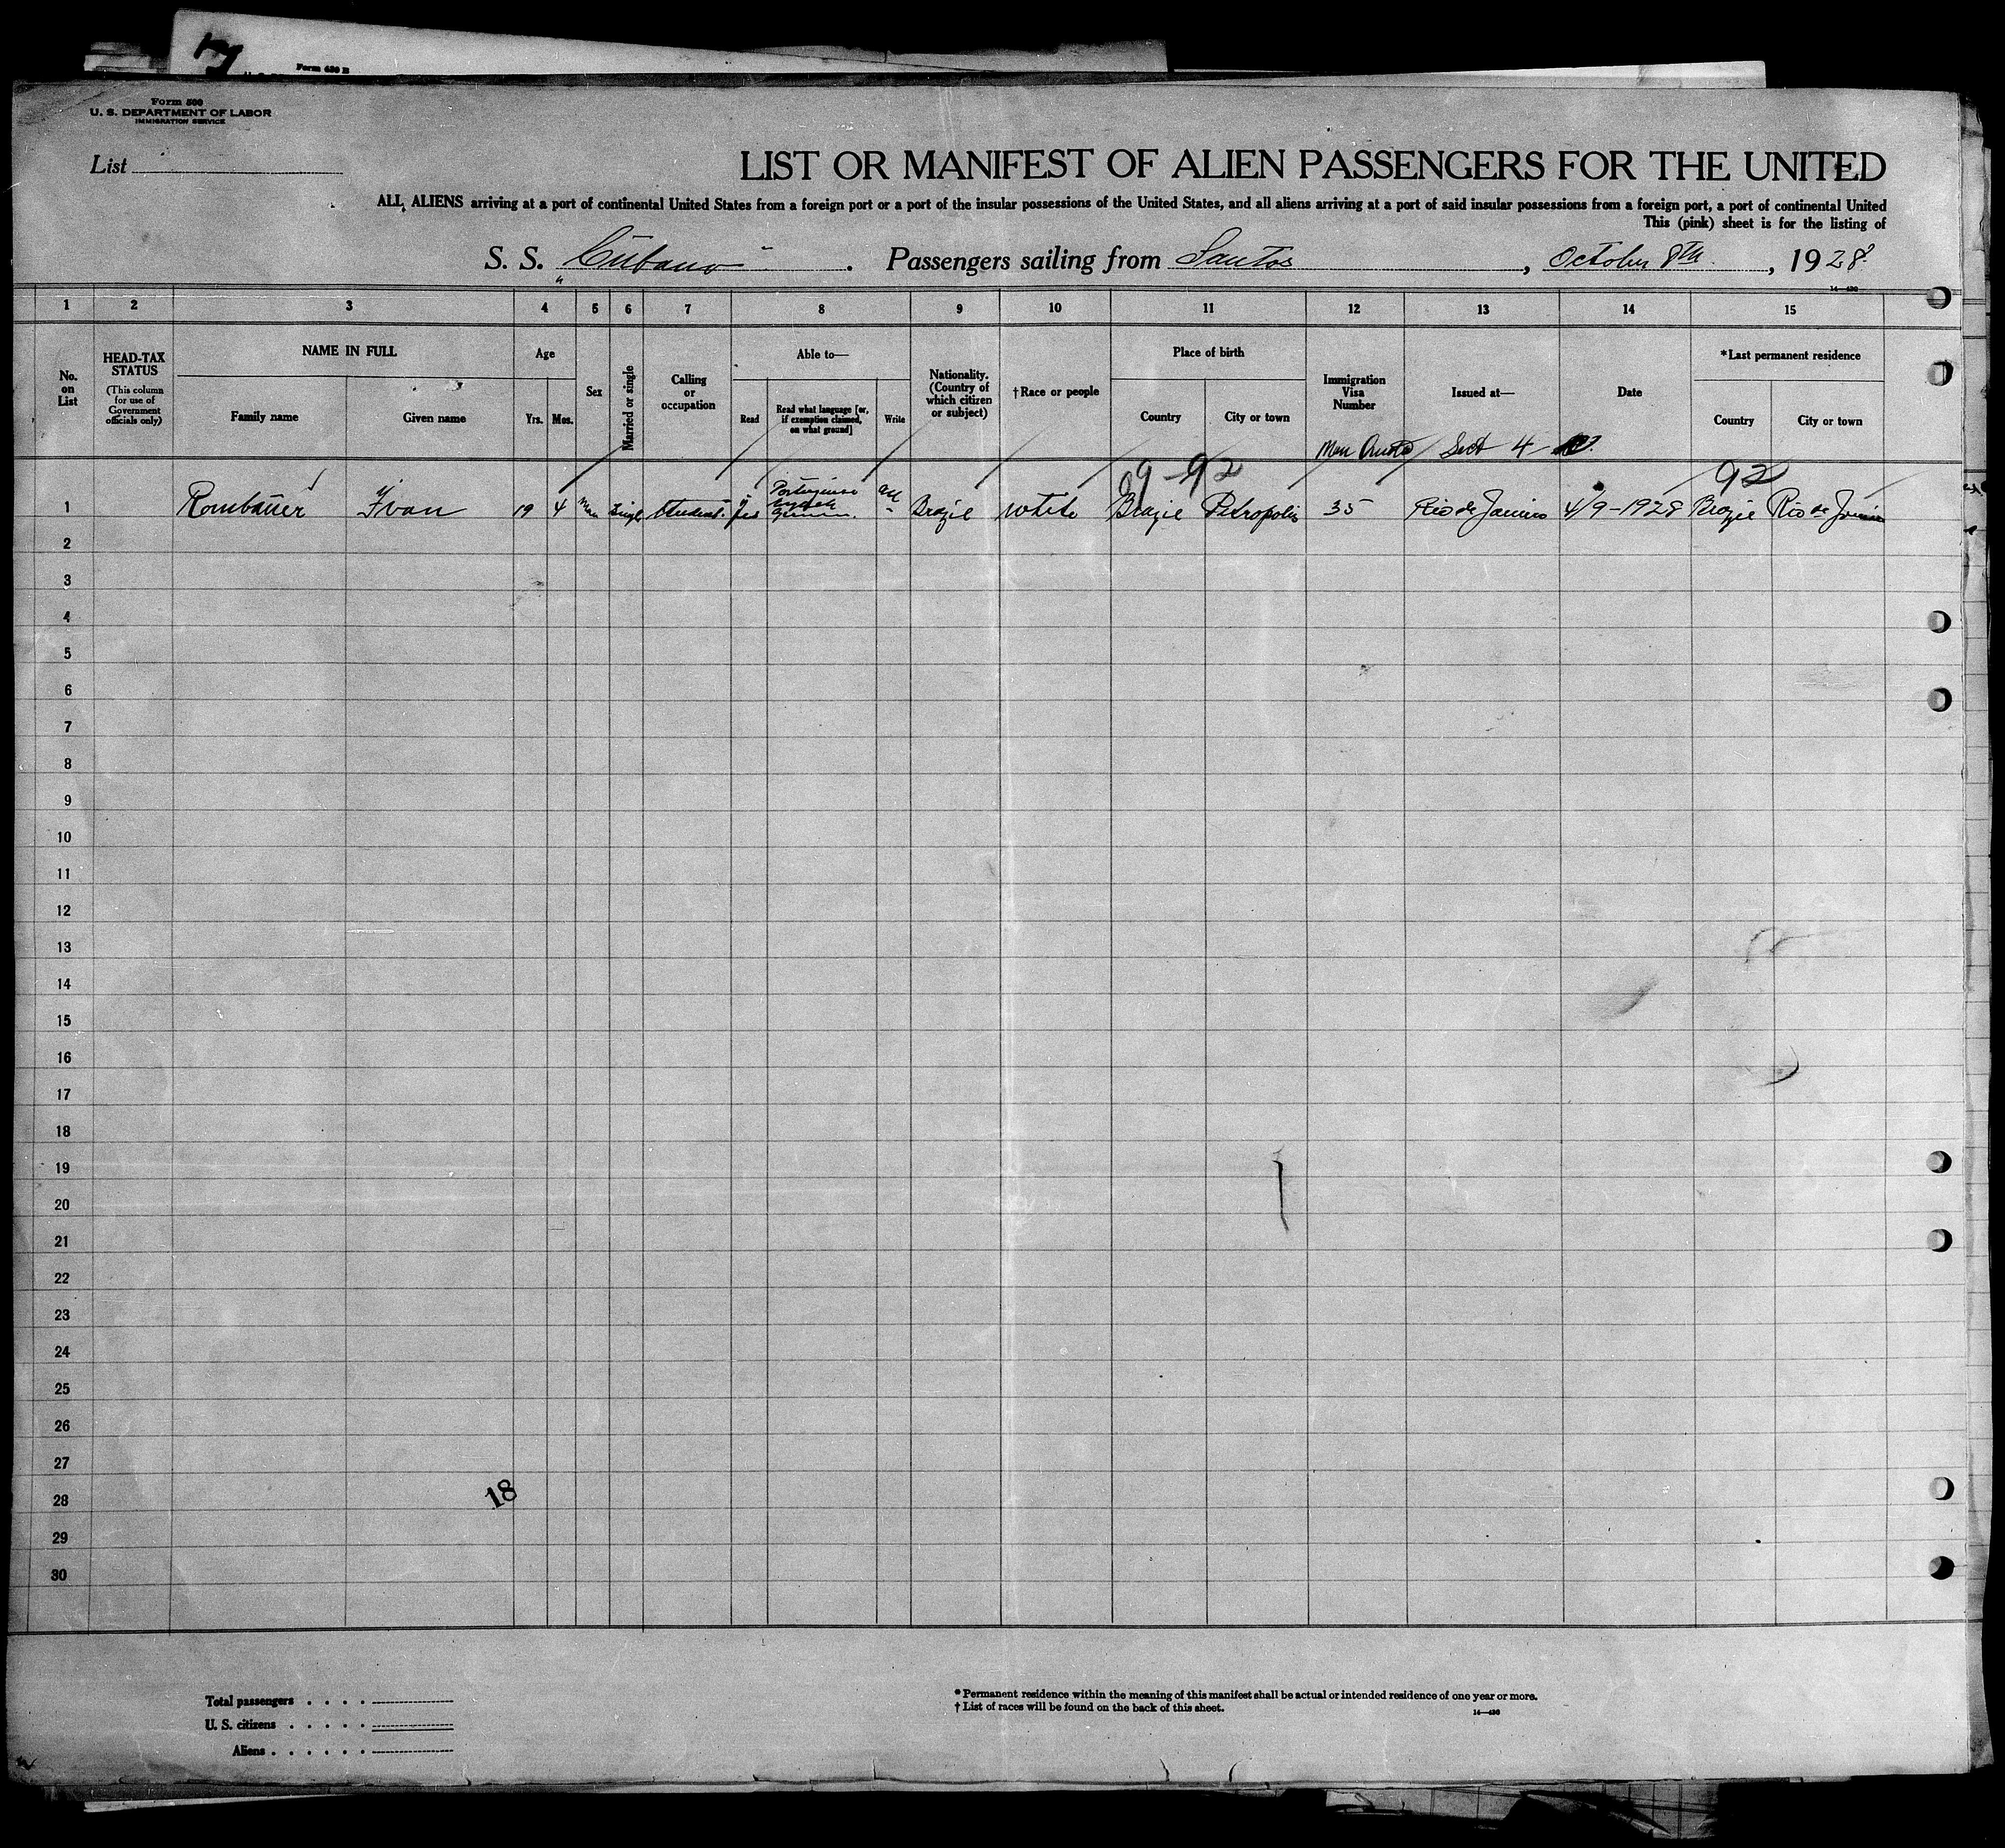 Form 630 B
Form 500
U. S. DEPARTMENT OF LABOR
IMMIGRATION SERVICE
List
LIST OR MANIFEST OF ALIEN PASSENGERS FOR THE UNITED
ALL ALIENS arriving at a port of continental United States from a foreign port or a port of the insular possessions of the United States, and all aliens arriving at a port of said insular possessions from a foreign port, a port of continental United
This (pink) sheet is for the listing of
S. S. "Cubano". Passengers sailing from Santos, October 8th, 1928.
1 2 3 4 5 6 7 8 9 10 11 12 13 14 15
No. on List
HEAD-TAX STATUS
(This column for use of Government officials only)
NAME IN FULL
Family name
Given name
Age
Yrs. Mos.
Sex
Married or single
Calling or occupation
Able to—
Read
Read what language [or, if exemption claimed, on what ground]
Write
Nationality. (Country of which citizen or subject)
†Race or people
Place of birth
Country
City or town
Immigration Visa Number
Issued at—
Date
*Last permanent residence
Country
City or town
Sect 4
99-92
92
1 Rombauer Ivan 19 4 Single Student yes Portuguese English German Brazil white Brazil Petropolis 35 Rio de Janeiro 4/9-1928 Brazil Rio de Janeiro
2
3
4
5
6
7
8
9
10
11
12
13
14
15
16
17
18
19
20
21
22
23
24
25
26
27
28
18
29
30
Total passengers
U. S. citizens
Aliens
* Permanent residence within the meaning of this manifest shall be actual or intended residence of one year or more.
† List of races will be found on the back of this sheet.
14—430